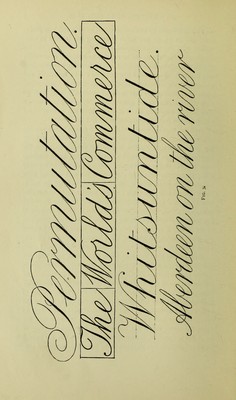 Permutation.
The World's Commerce
Whitsuntide.
Aberdeen on the river